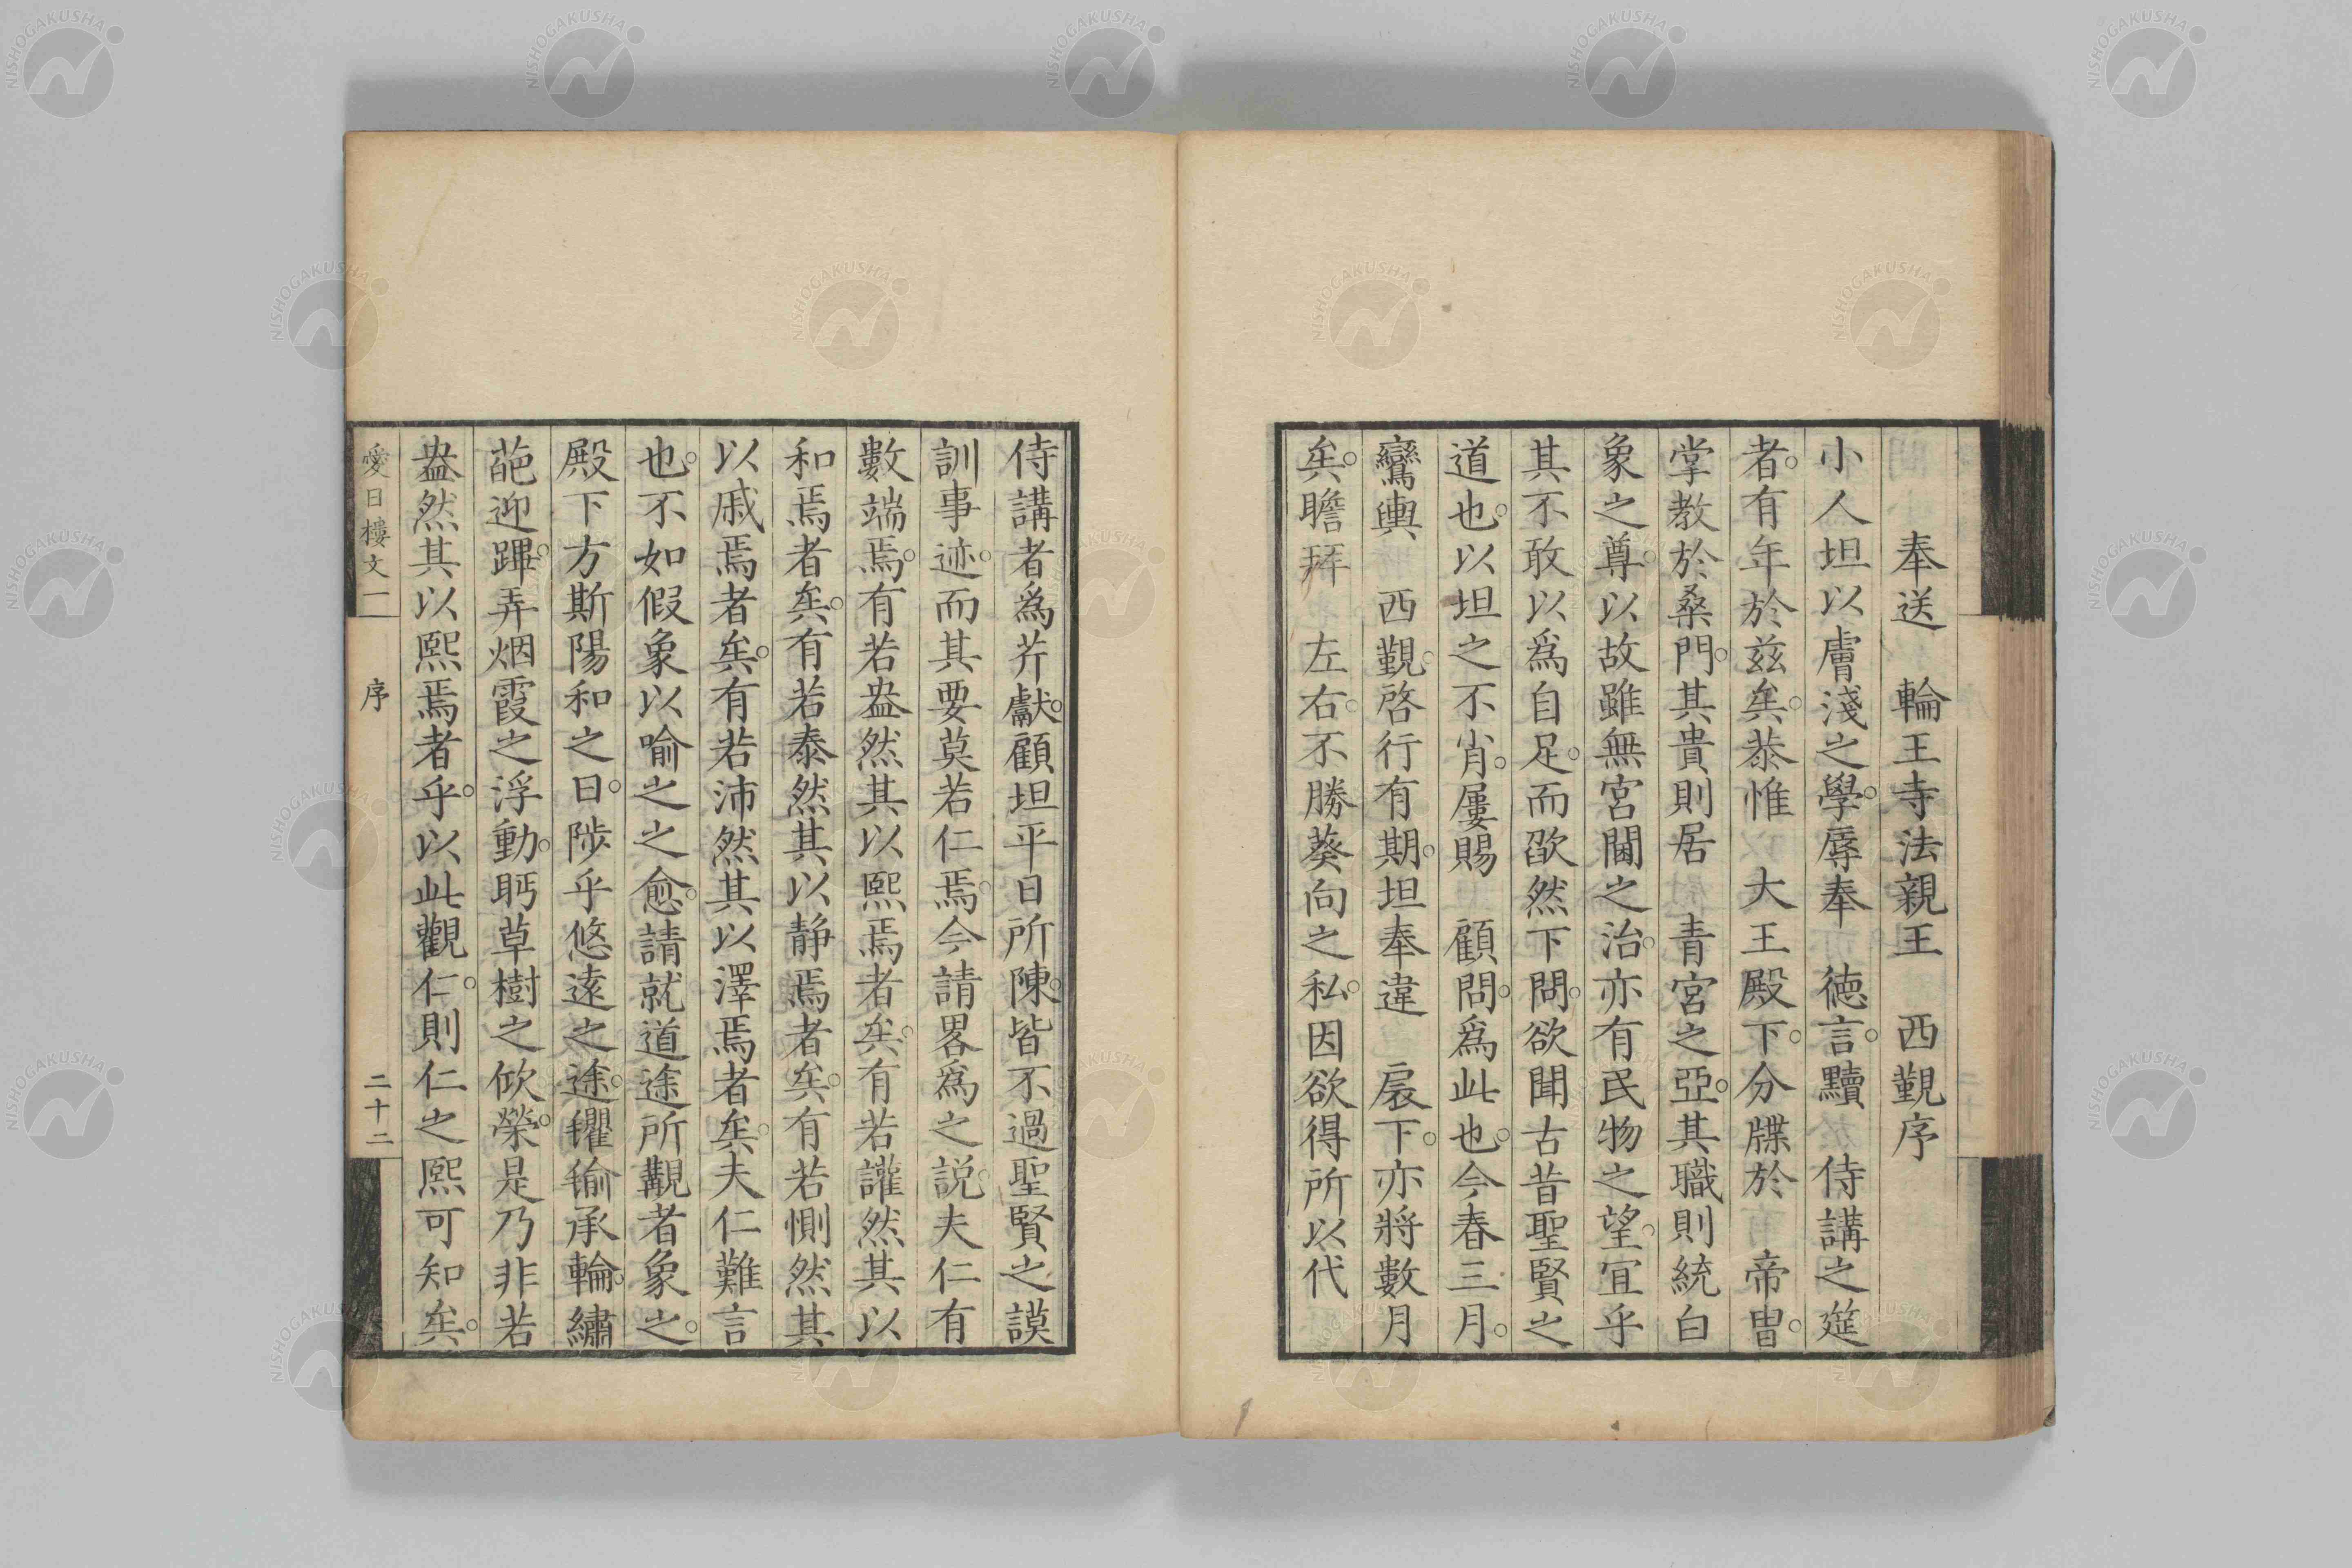 奉送　輪王寺法親王　西覲序
小人坦以膚淺之學。辱奉　德言。黷　侍講之筵
者。有年於茲矣。恭惟　大王殿下。分牒於　帝冑。
掌教於桑門。其貴則居　青宮之亞。其職則統白
象之尊。以故雖無宮閫之治。亦有民物之望。宜乎
其不敢以爲自足。而欿然下問。欲聞古昔聖賢之
道也。以坦之不肖。屢賜　顧問。爲此也。今春三月。
鸞輿　西覲。啓行有期。坦奉違　扆下。亦將數月
矣。瞻拜　左右。不勝葵向之私。因欲得所以代
侍講者爲芹獻。顧坦平日所陳。皆不過聖賢之謨
訓事迹。而其要莫若仁焉。今請畧爲之説。夫仁有
數端焉。有若盎然其以熙焉者矣。有若讙然其以
和焉者矣。有若泰然其以靜焉者矣。有若惻然其
以戚焉者矣。有若沛然其以澤焉者矣。夫仁難言
也。不如假象以喻之之愈。請就道途所覯者象之。
殿下方斯陽和之日。陟乎悠遠之途。氍毹承輪。繡
葩迎蹕。弄烟霞之浮動。眄草樹之欣榮。是乃非若
盎然其以熙焉者乎。以此觀仁。則仁之熙可知矣。
愛日樓文一　序　二十二
NISHOGAKUSHA